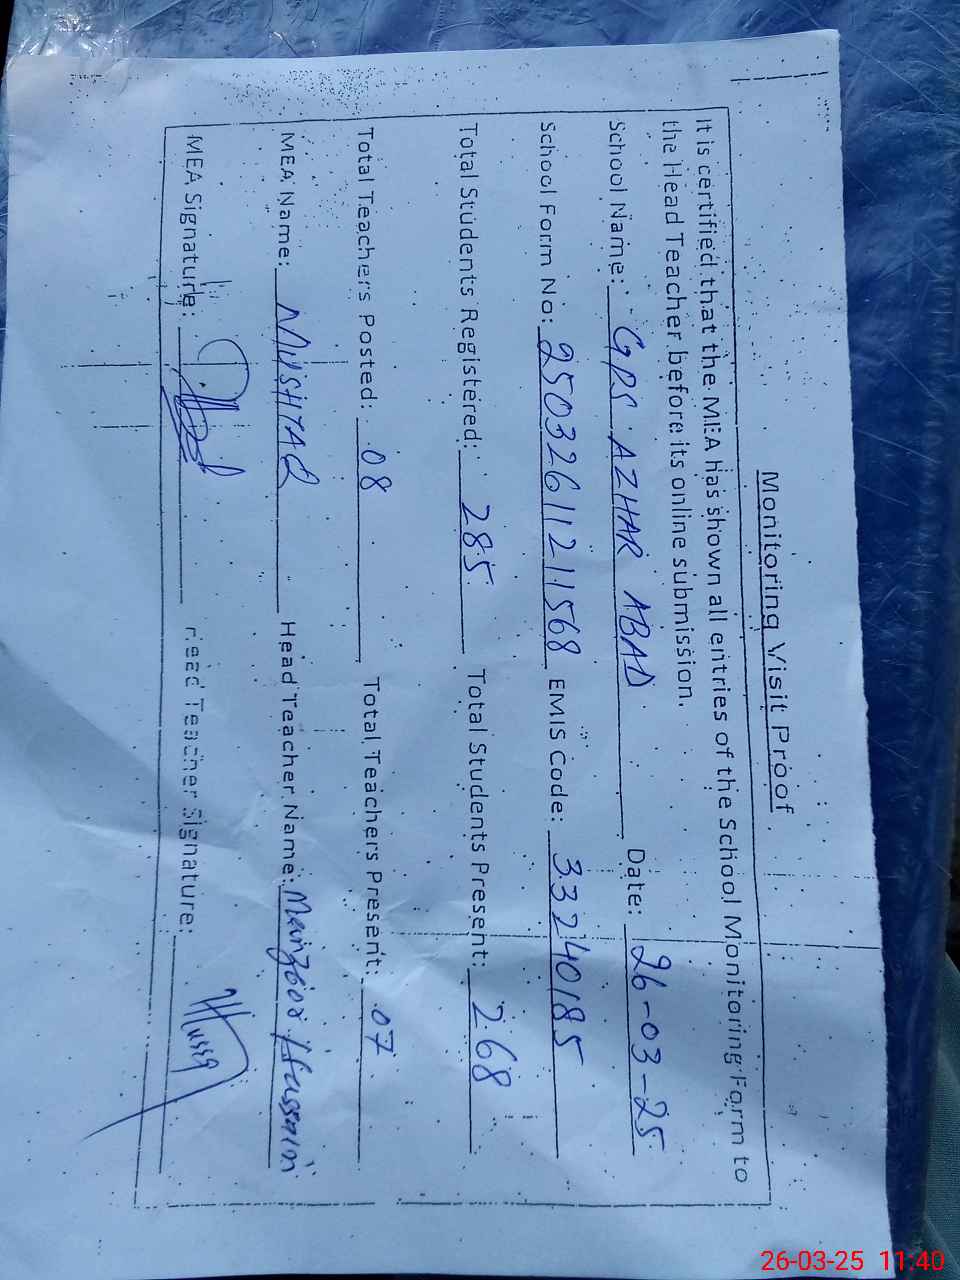 Monitoring Visit Proof
It is certified that the MEA has shown all entries of the School Monitoring Form to
the Head Teacher before its online submission.
School Name: GPS AZHAR ABAD Date: 26-03-25
School Form No: 25032611211568 EMIS Code: 33240185
Total Students Registered: 285 Total Students Present: 268
Total Teachers Posted: 08 Total Teachers Present: 07
MEA Name: MUSHTAQ Head Teacher Name: Manzoor Hussain
MEA Signature: Head Teacher Signature:
26-03-25 11:40